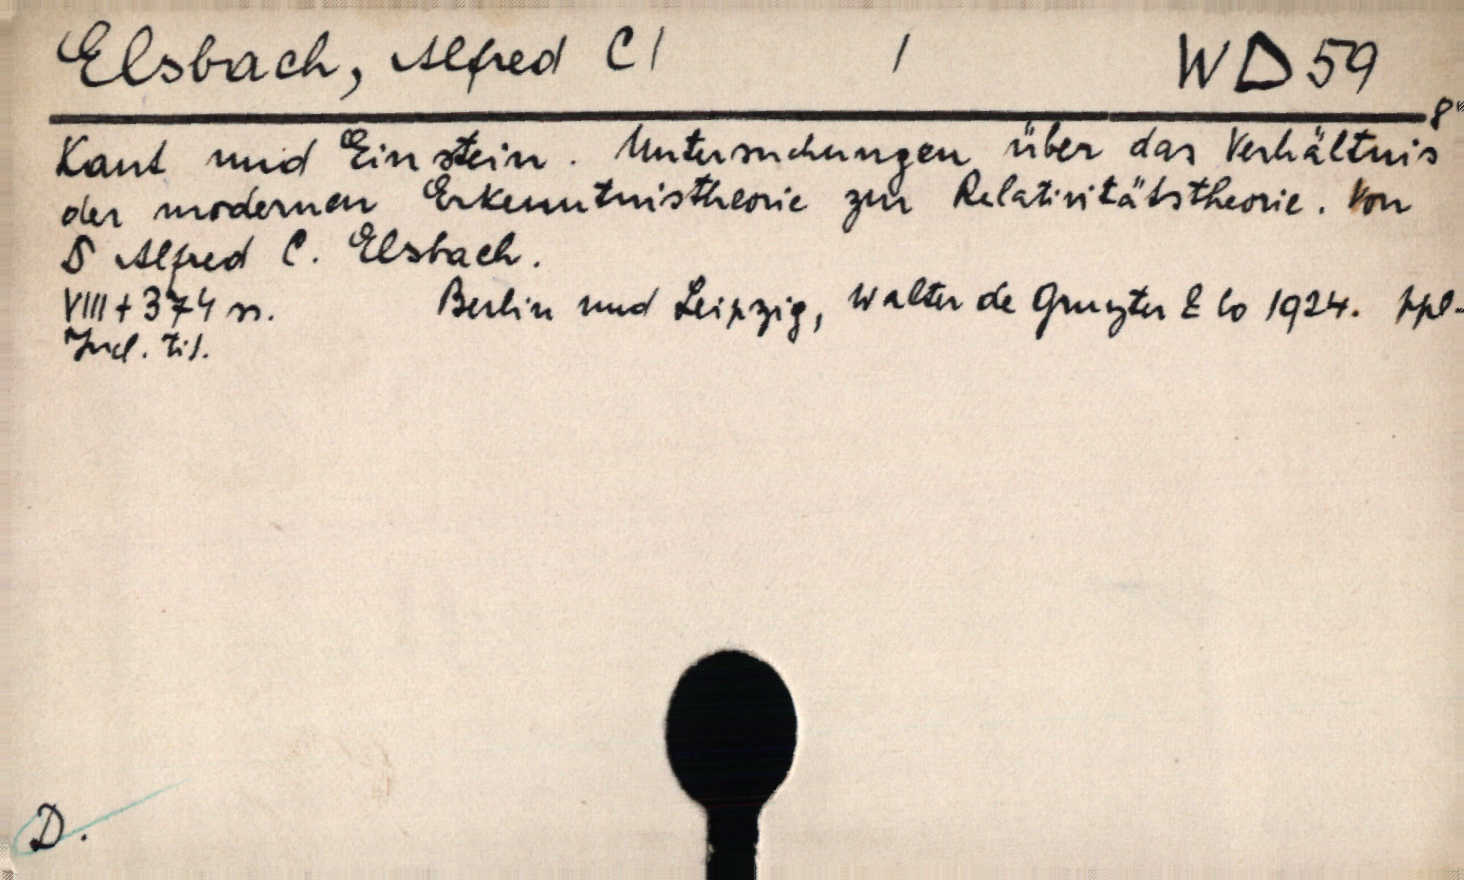 Elsbach, Alfred C / / WD 59
8°
Kant und Einstein. Untersuchungen über das Verhältnis
der modernen Erkenntnistheorie zur Relativitätstheorie. Von
D Alfred C. Elsbach.
VIII + 374 ss. Berlin und Leipzig, Walter de Gruyter & Co 1924. ppl-
Incl. tit.
D.